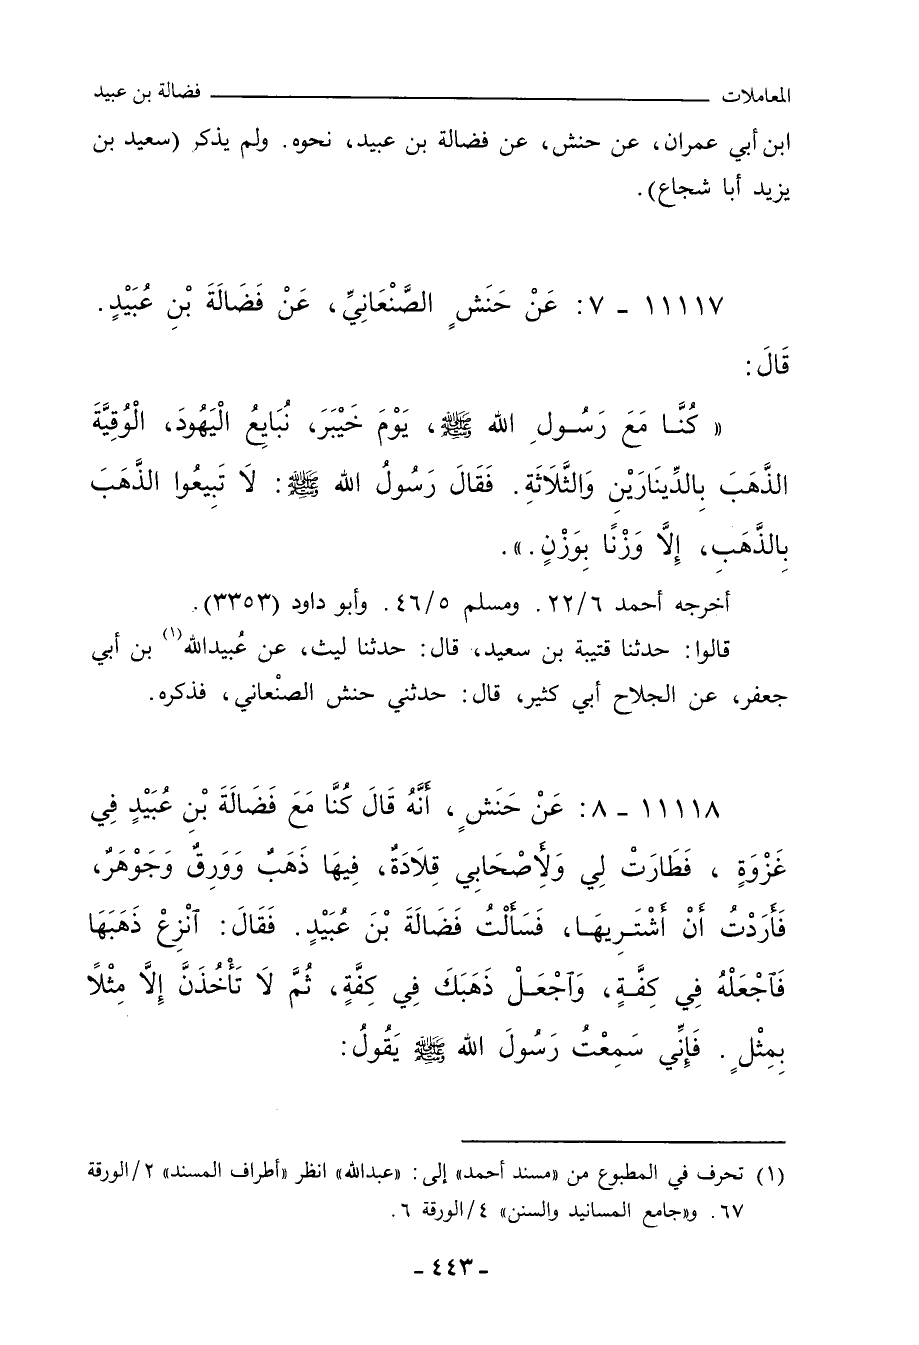 المعاملات ــــــــ فضالة بن عبيد
ابن أبي عمران، عن حنش، عن فضالة بن عبيد، نحوه. ولم يذكر (سعيد بن
يزيد أبا شجاع).
١١١١٧ - ٧: عَنْ حَنَشٍ الصَّنْعَانِيِّ، عَنْ فَضَالَةَ بْنِ عُبَيْدٍ.
قَالَ:
« كُنَّا مَعَ رَسُولِ الله ﷺ، يَوْمَ خَيْبَرَ، نُبَايِعُ الْيَهُودَ، الْوُقِيَّةَ
الذَّهَبَ بِالدِّينَارَيْنِ وَالثَّلَاثَةِ. فَقَالَ رَسُولُ الله ﷺ: لَا تَبِيعُوا الذَّهَبَ
بِالذَّهَبِ، إِلَّا وَزْنًا بِوَزْنٍ.».
أخرجه أحمد ٢٢/٦. ومسلم ٤٦/٥. وأبو داود (٣٣٥٣).
قالوا: حدثنا قتيبة بن سعيد، قال: حدثنا ليث، عن عُبيدالله(١) بن أبي
جعفر، عن الجلاح أبي كثير، قال: حدثني حنش الصنْعاني، فذكره.
١١١١٨ - ٨: عَنْ حَنَشٍ، أَنَّهُ قَالَ كُنَّا مَعَ فَضَالَةَ بْنِ عُبَيْدٍ فِي
غَزْوَةٍ ، فَطَارَتْ لِي وَلِأَصْحَابِي قِلَادَةٌ، فِيهَا ذَهَبٌ وَوَرِقٌ وَجَوْهَرٌ،
فَأَرَدْتُ أَنْ أَشْتَرِيهَا، فَسَأَلْتُ فَضَالَةَ بْنَ عُبَيْدٍ. فَقَالَ: ٱنْزِعْ ذَهَبَهَا
فَٱجْعَلْهُ فِي كِفَّةٍ، وَٱجْعَلْ ذَهَبَكَ فِي كِفَّةٍ، ثُمَّ لَا تَأْخُذَنَّ إِلَّا مِثْلًا
بِمِثْلٍ. فَإِنِّي سَمِعْتُ رَسُولَ الله ﷺ يَقُولُ:
(١) تحرف في المطبوع من «مسند أحمد» إلى: «عبدالله» انظر «أطراف المسند» ٢/الورقة
٦٧. و«جامع المسانيد والسنن» ٤/الورقة ٦.
- ٤٤٣ -